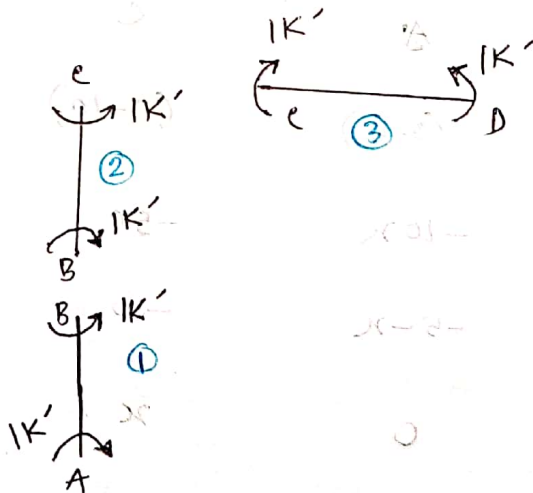 1K'
1K'
C
1K'
C
③
D
②
1K'
B
B
1K'
①
1K'
A